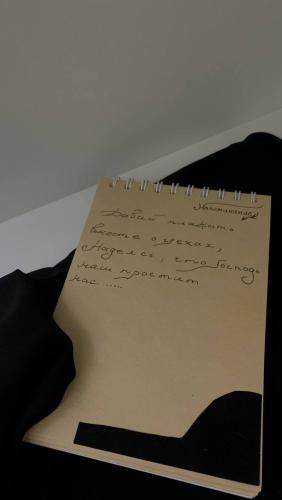 Напоминание
Давай плакать
вместе о грехах,
Надеясь, что Господь
наш простит
нас .....